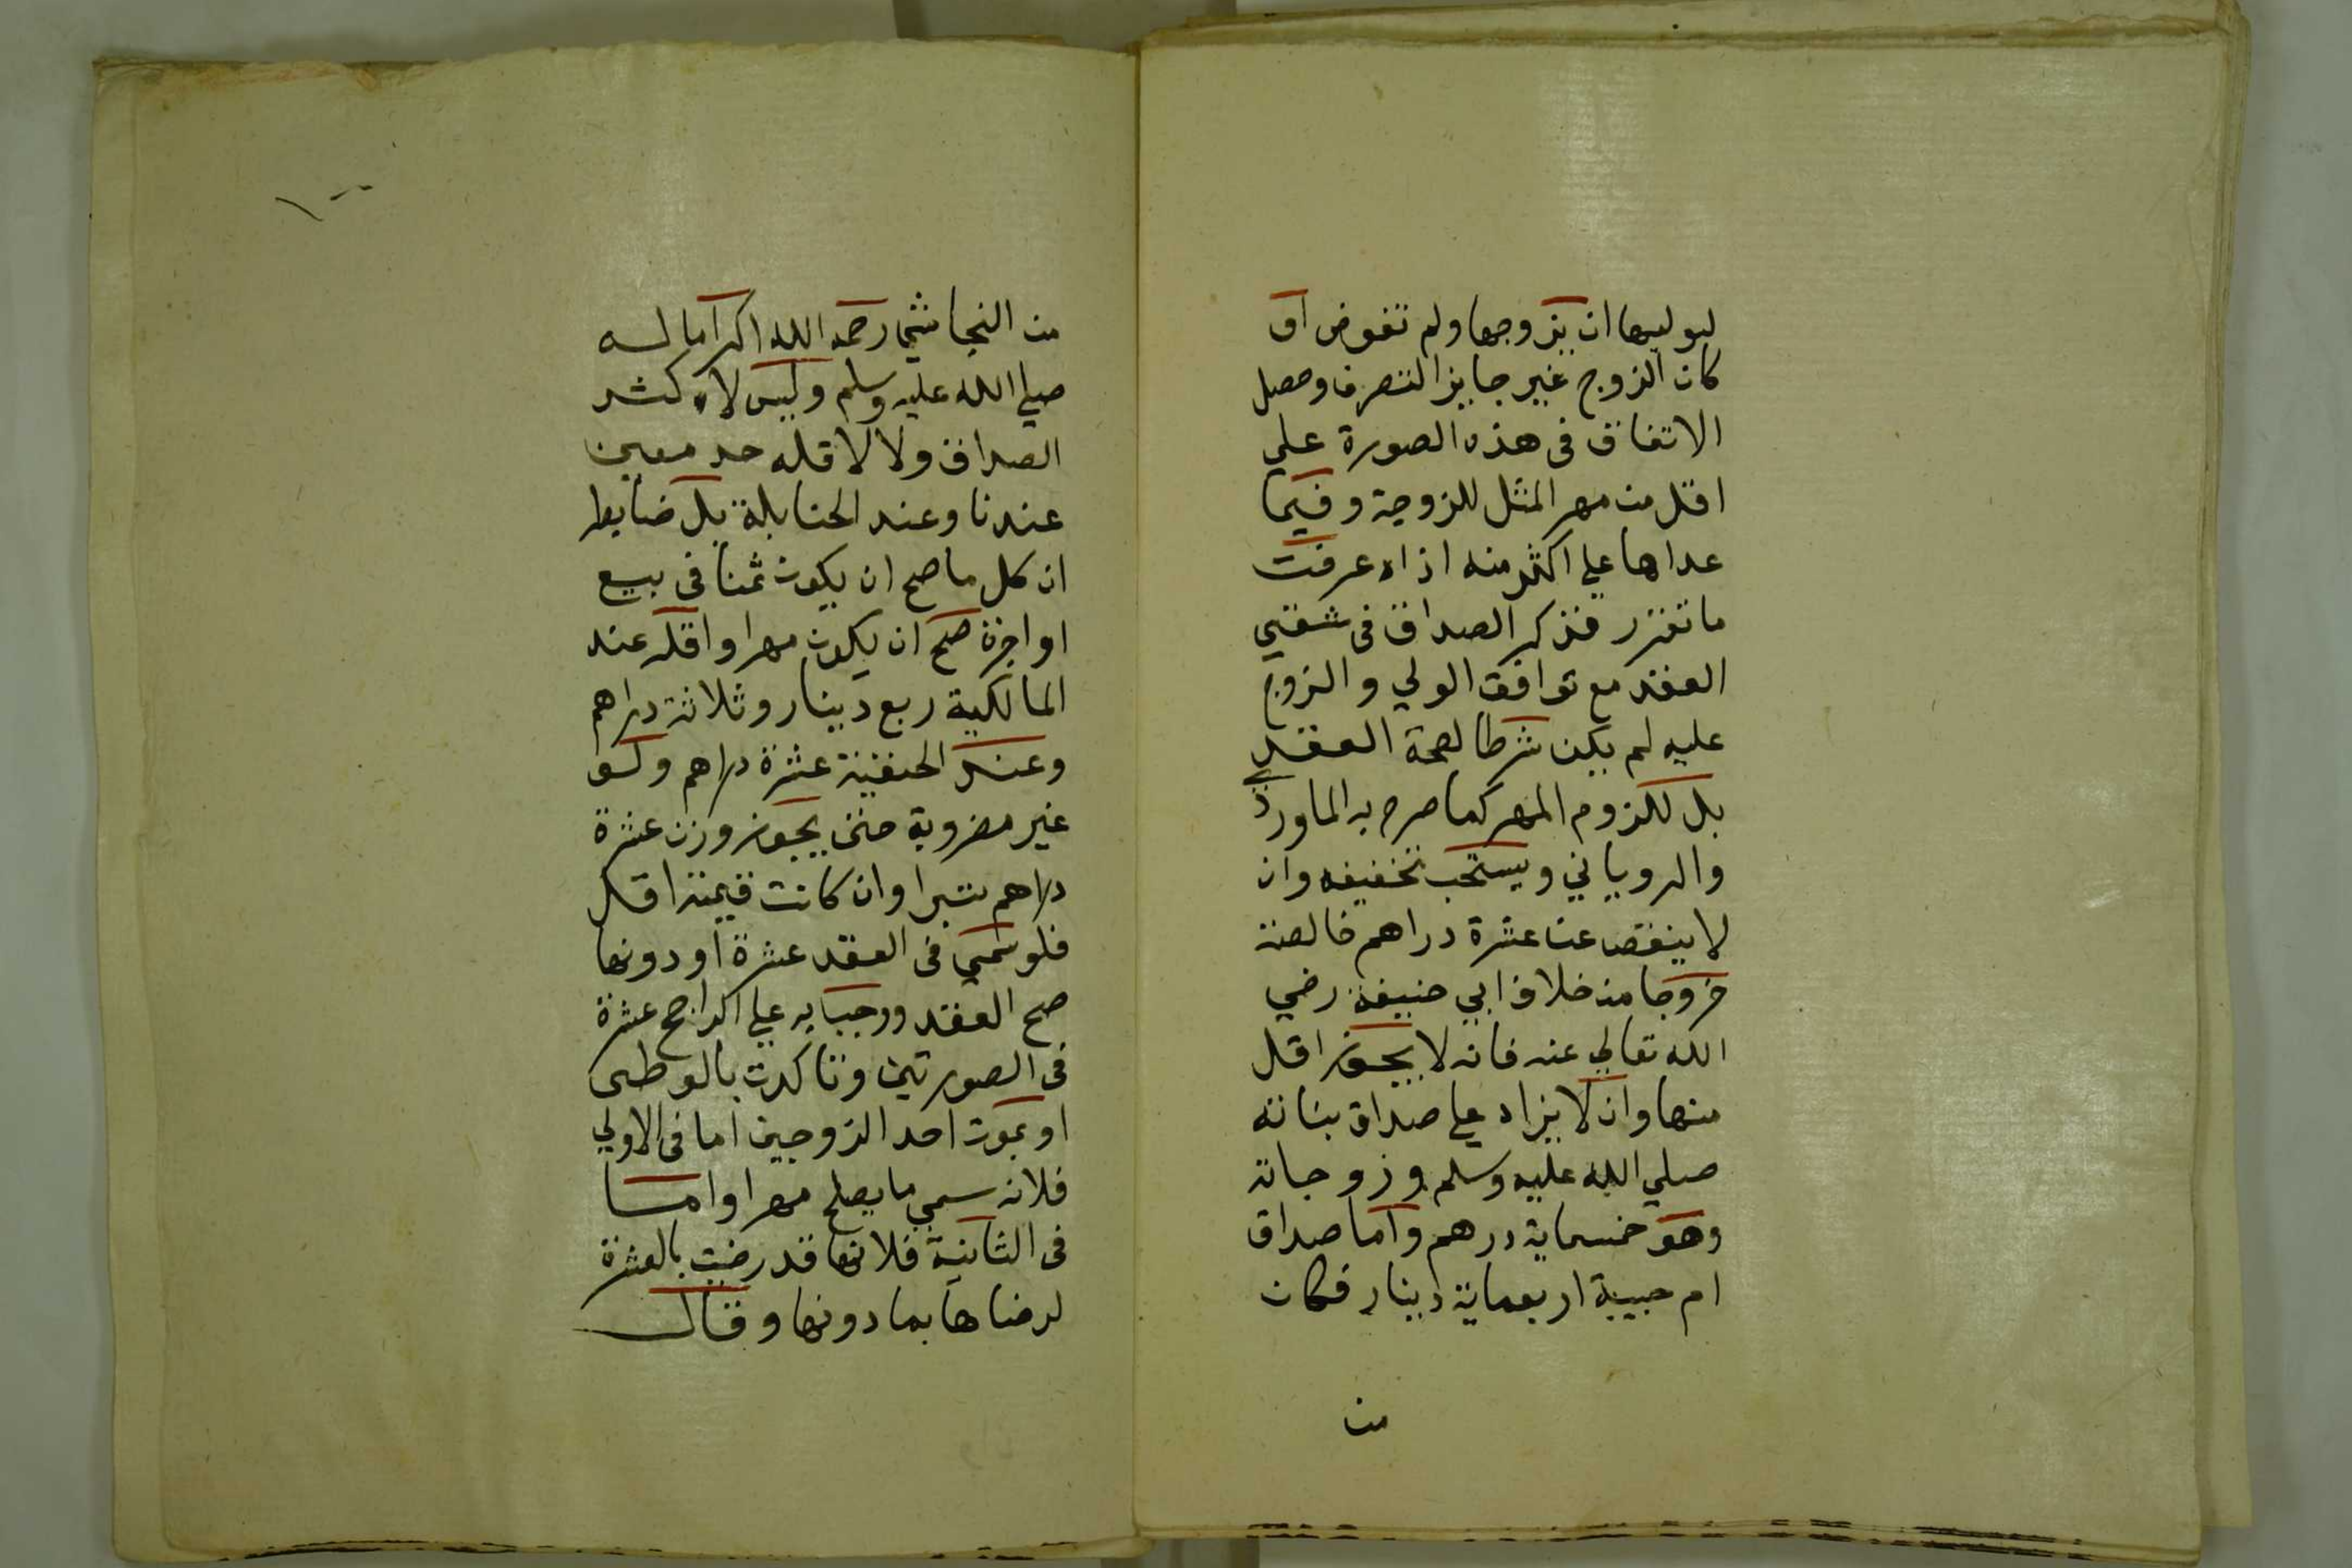 لوليها ان يزوجها ولم تفوض او
كان الزوج غير جايز التصرف وحصل
الاتفاق فى هذه الصورة علي
اقل من مهر المثل للزوجة وفيما
عداها علي اكثر منه اذاه عرفت
ما تقرر فذكر الصداق فى شقي
العقد مع توافق الولي والزوج
عليه لم يكن شرطا لصحة العقد
بل للزوم المهر كما صرح به الماوردي
والروياني ويستحب تخفيفه وان
لا ينقص عن عشرة دراهم خالصة
خروجا من خلاف ابي حنيفة رضي
الله تعالي عنه فانه لا يجوز اقل
منها وان لا يزاد علي صداق بناته
صلي الله عليه وسلم وزوجاته
وهو خمسماية درهم واما صداق
ام حبيبة اربعماية دينار فكان
من
١٠٠
من النجاشي رحمه الله اكراما له
صلي الله عليه وسلم وليس لاكثر
الصداق ولا لاقله حد معين
عندنا وعند الحنابلة بل ضابط
ان كل ما صح ان يكون ثمنا فى بيع
او اجرة صح ان يكون مهرا واقله عند
المالكية ربع دينار وثلاثة دراهم
وعند الحنفية عشرة دراهم ولو
غير مضروبة حتى يجوز وزن عشرة
دراهم تبرا وان كانت قيمته اقل
فلو سمي فى العقد عشرة او دونها
صح العقد ووجبا به علي الراجح عشرة
فى الصورتين وتاكدت بالوطى
او بموت احد الزوجين اما فى الاولي
فلانه سمي ما يصلح مهرا واما
فى الثانية فلانها قد رضيت بالعشرة
لرضاها بما دونها وقال